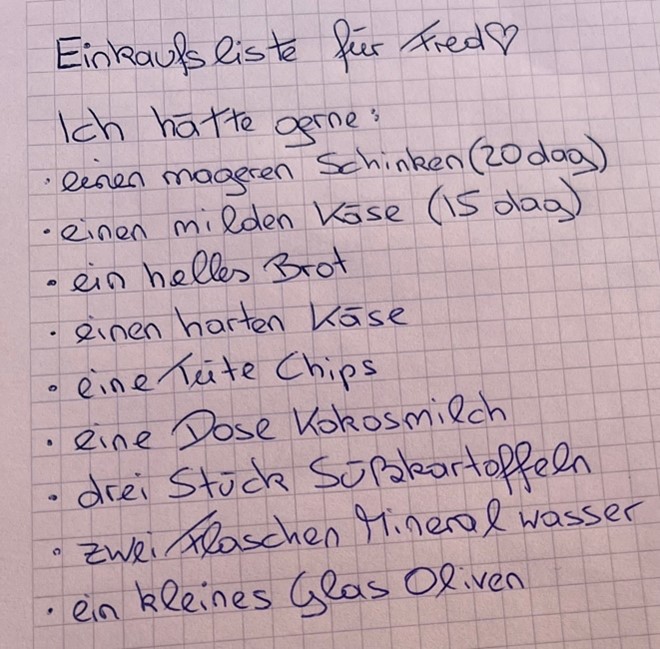 Einkaufsliste für Fred♡
Ich hätte gerne:
· einen mageren Schinken (20 dag)
· einen milden Käse (15 dag)
· ein helles Brot
· einen harten Käse
· eine Tüte Chips
· eine Dose Kokosmilch
· drei Stück Süßkartoffeln
· zwei Flaschen Mineralwasser
· ein kleines Glas Oliven